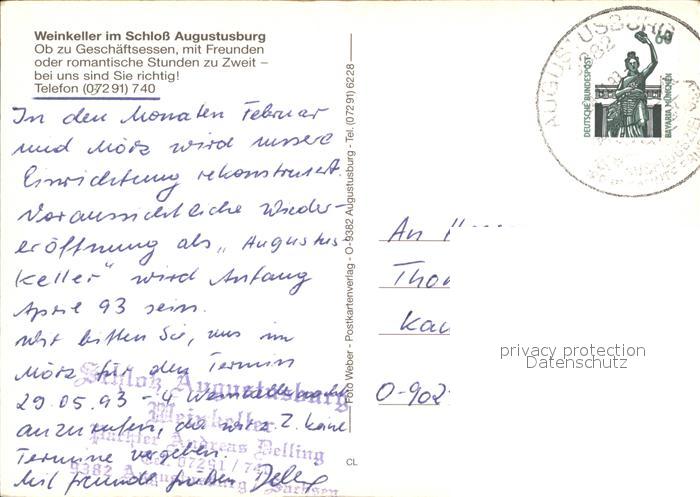 Weinkeller im Schloß Augustusburg
Ob zu Geschäftsessen, mit Freunden
oder romantische Stunden zu Zweit –
bei uns sind Sie richtig!
Telefon (07291) 740
In den Monaten Februar
und März wird unsere
Einrichtung rekonstruiert.
Voraussichtliche Wieder-
eröffnung als „Augustus
keller" wird Anfang
April 93 sein.
Wir bitten Sie, uns im
März für den Termin
29.05.93 - 4
anzurufen, da wir z. Z. keine
Termine vergeben.
Mit freundl. Grüßen
Schloß Augustusburg
Weinkeller
Pächter Andreas Delling
Tel. 07291 / 74
9382 Augustusburg / Sachsen
Foto Weber - Postkartenverlag - O-9382 Augustusburg - Tel. (07291) 6228
CL
AUGUSTUSBURG
9382
60
DEUTSCHE BUNDESPOST
BAVARIA MÜNCHEN
An
Tho
Kau
O-902
privacy protection
Datenschutz